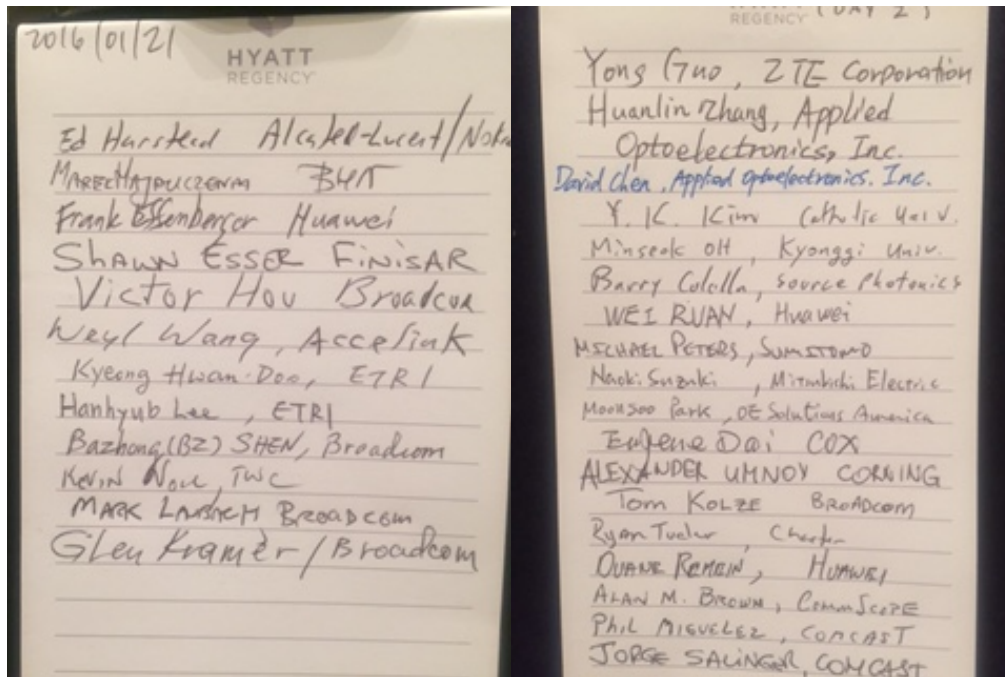 2016/01/21
HYATT
REGENCY
Ed Harstead Alcatel-Lucent/Nokia
Marek Hajduczenia BHN
Frank Effenberger Huawei
SHAWN ESSER FINISAR
Victor Hou Broadcom
Weyl Wang, Accelink
Kyeong Hwan-Doo, ETRI
Hanhyub Lee, ETRI
Bazhong (BZ) SHEN, Broadcom
Kevin Noll, TWC
MARK LAUBACH BROADCOM
Glen Kramer / Broadcom
REGENCY (DAY 2)
Yong Guo, ZTE Corporation
Huanlin Zhang, Applied
Optoelectronics, Inc.
David Chen, Applied Optoelectronics. Inc.
Y. K. Kim Catholic Univ.
Minseok OH, Kyonggi Univ.
Barry Colella, Source Photonics
WEI RUAN, Huawei
MICHAEL PETERS, SUMITOMO
Naoki Suzuki, Mitsubishi Electric
Moonsoo Park, OE Solutions America
Eugene Dai COX
ALEXANDER UMNOV CORNING
Tom KOLZE BROADCOM
Ryan Tucker, Charter
DUANE REMEIN, HUAWEI
ALAN M. BROWN, CommScope
PHIL MIGUELEZ, COMCAST
JORGE SALINGER, COMCAST